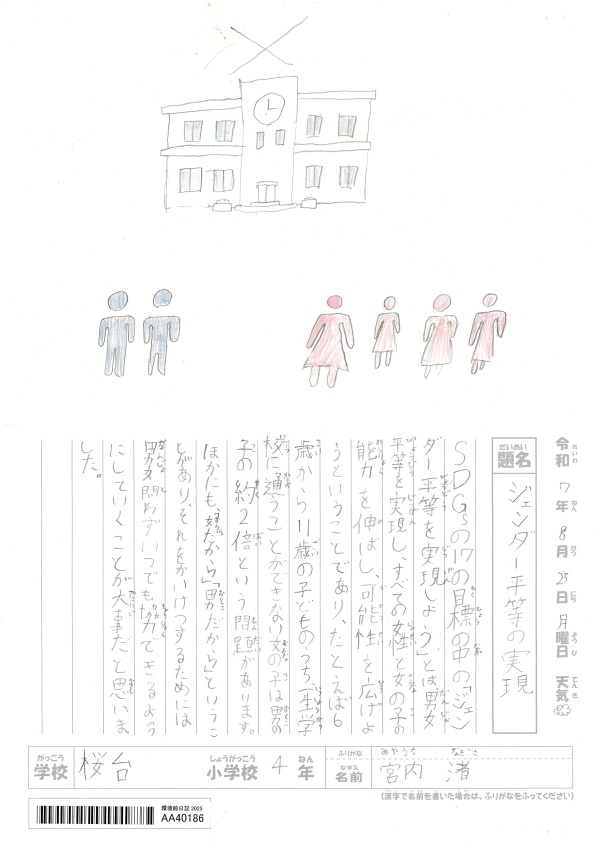 令和 7年 8月 25日 月曜日 天気
れいわ ねん がつ にち ようび てんき
だいめい
題名 ジェンダー平等の実現
SDGsの17の目標の中の「ジェン
ダー平等を実現しよう」とは男女
平等を実現し、すべての女性と女の子の
能力を伸ばし、可能性を広げよ
うということであり、たとえば6
歳から11歳の子どものうち、一生学
校に通うことができない女の子は男の
子の約2倍という問題があります。
ほかにも、「女だから」「男だから」というこ
とがあり、それをかいけつするためには
男女問わずいつでも協力できるよう
にしていくことが大事だと思いま
した。
がっこう しょうがっこう ねん ふりがな みやうち なぎさ
学校 桜台 小学校 4年 なまえ 名前 宮内 渚
(漢字で名前を書いた場合は、ふりがなをふってください)
環境絵日記 2025
AA40186